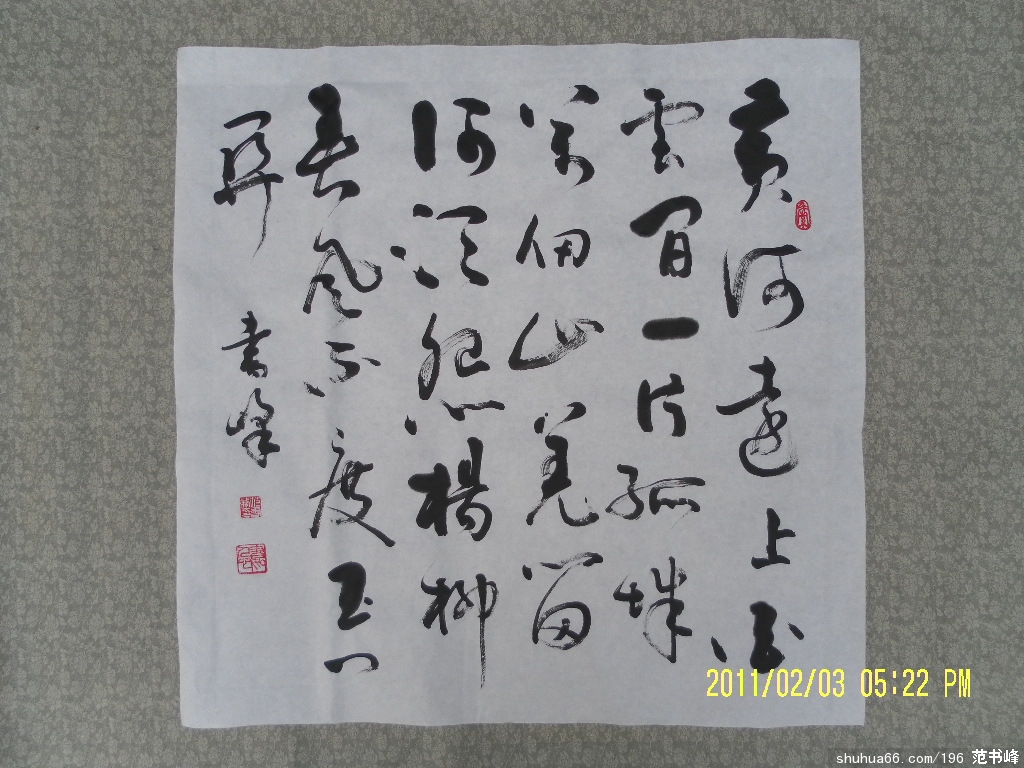 黃河遠上白
雲間一片孤城
萬仞山羌笛
何須怨楊柳
春風不度玉門
關 書峰
2011/02/03 05:22 PM
shuhua66.com/196 范书峰